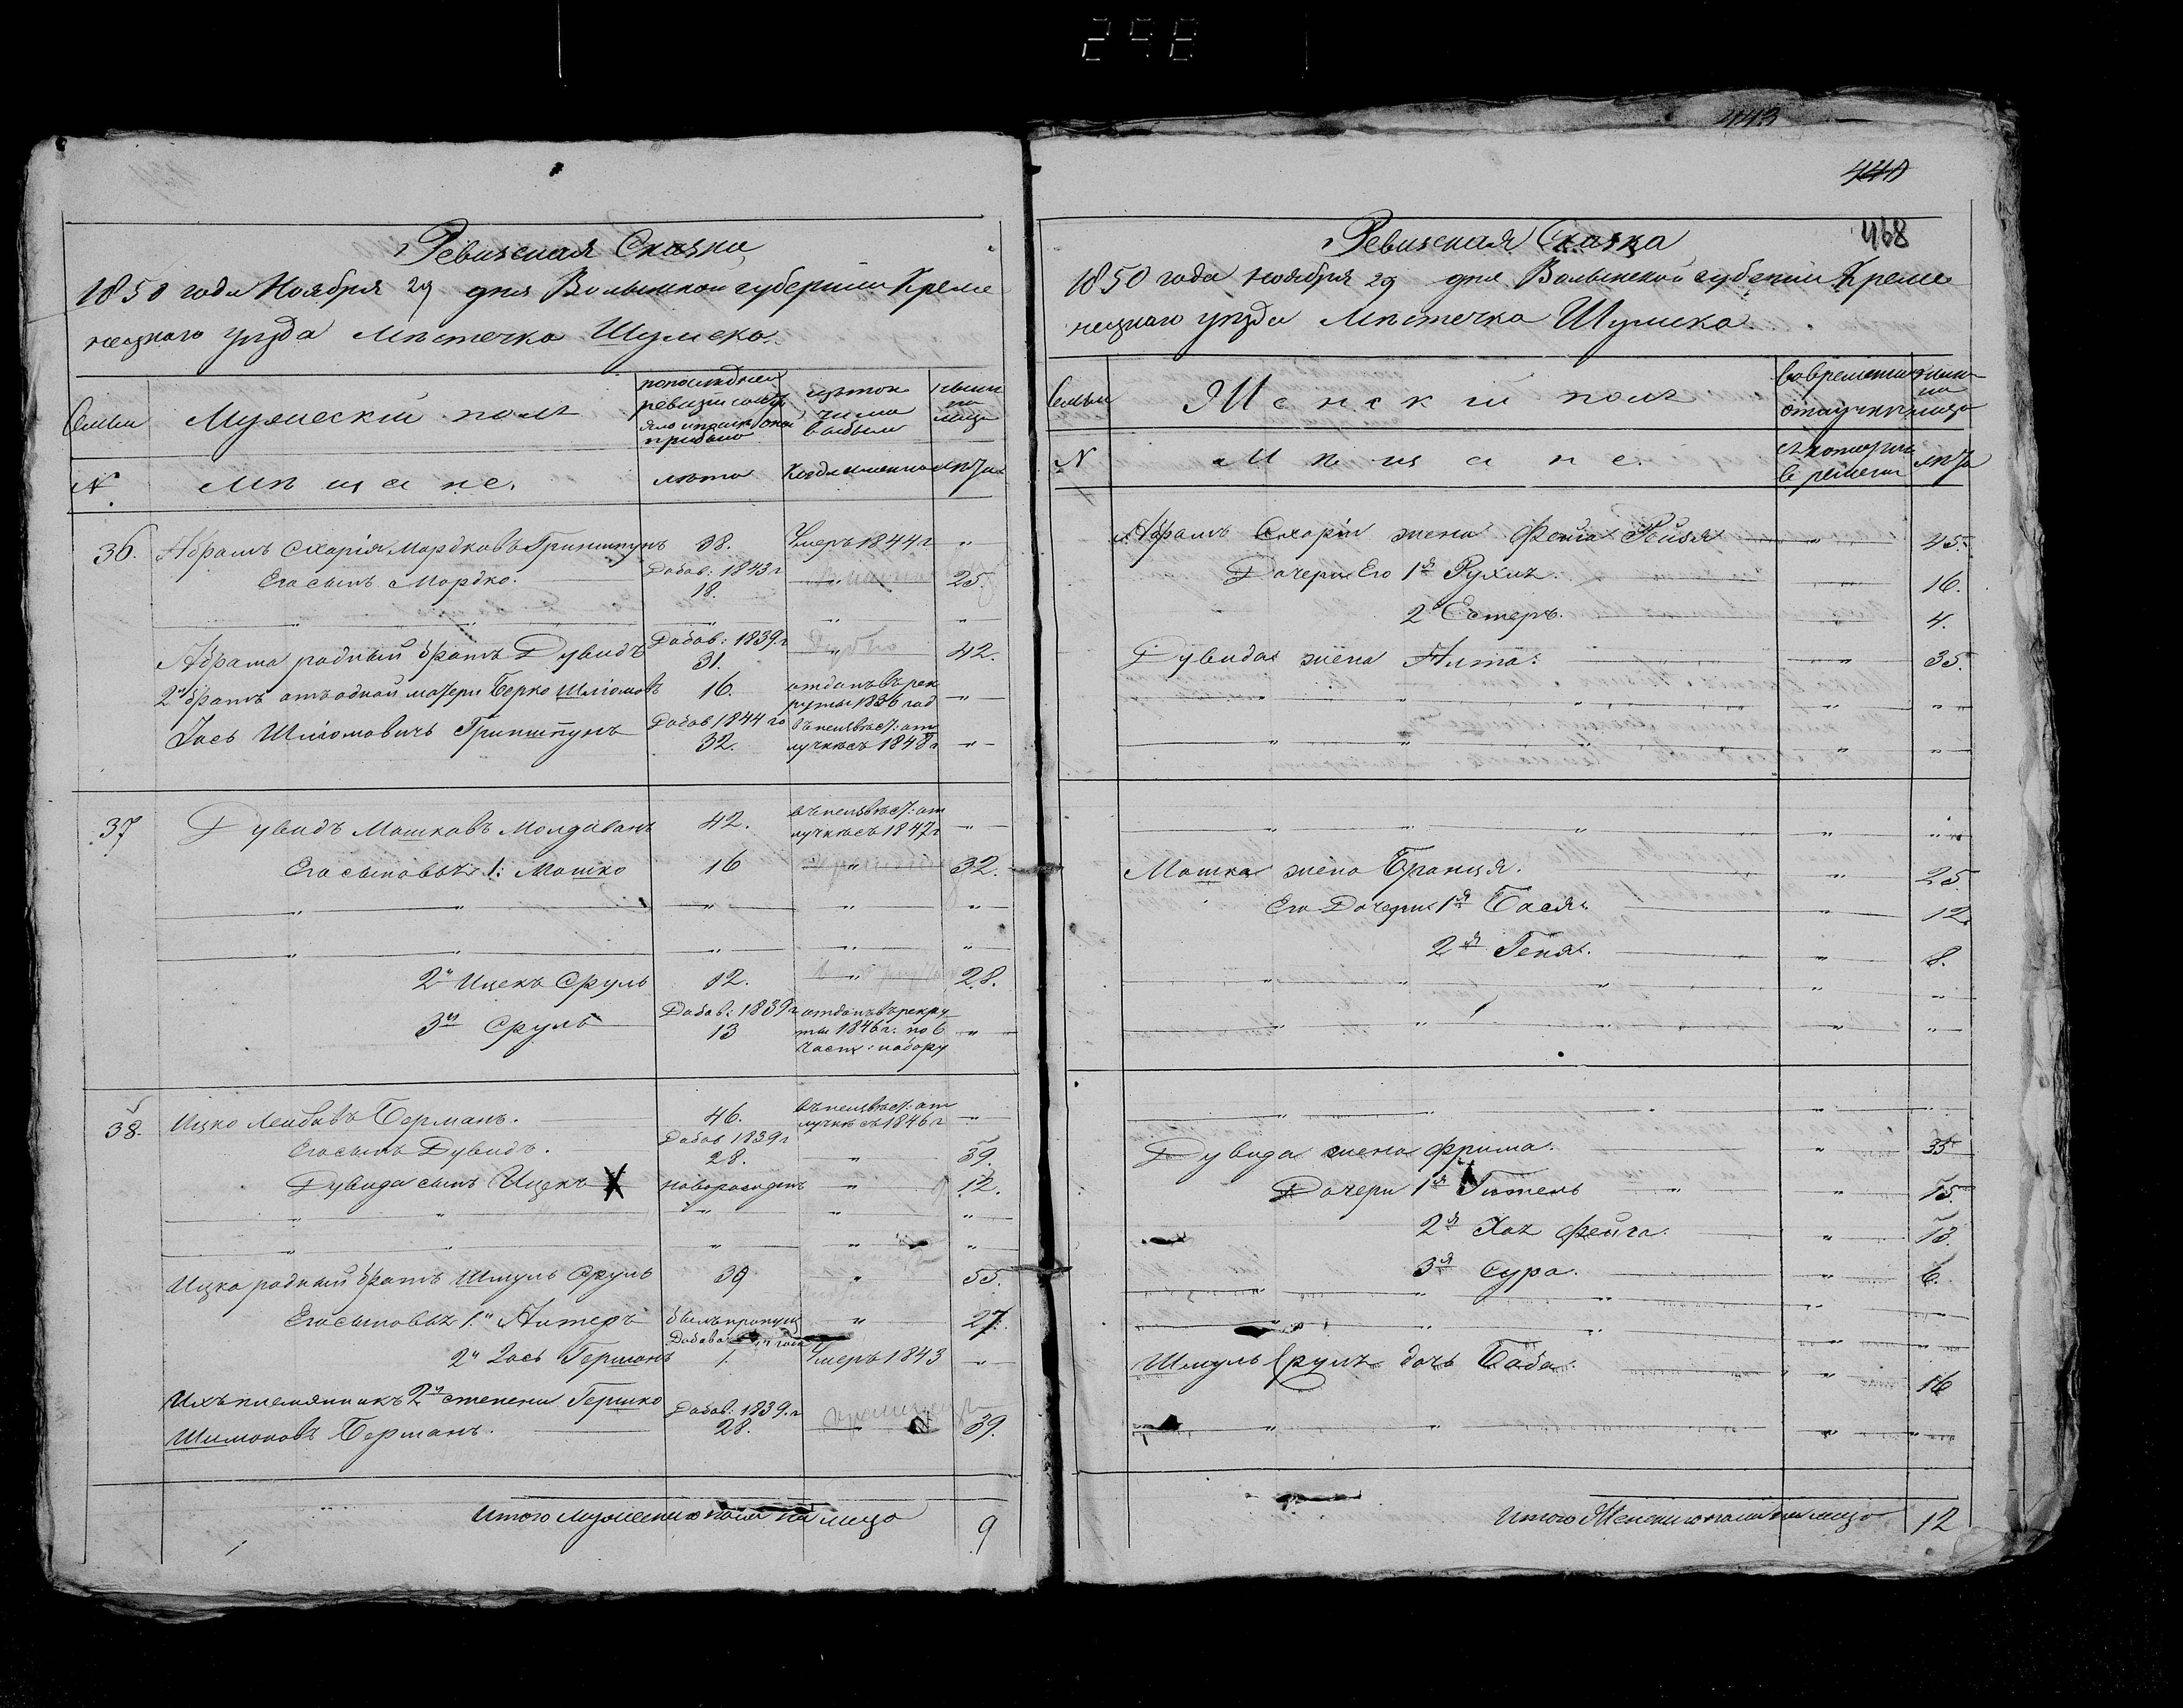 298
Ревизская Сказка
1850 года Ноября 29 дня Волынской губернии Креме
нецкаго уезда Местечка Шумска.
Семьи
Мужеский полъ
по последней
ревизии состо
яло и после оной
прибыло
изъ того
числа
выбыло
ныне
на
лицо
N.
Мещане.
лета
Когда именно
лета
36.
Абрамъ Схарія Мордковъ Гринштунъ
38.
Умеръ 1844 г
"
Его сынъ Мордко.
Добав: 1843 г
18.
25.
Абрама родный братъ Дувидъ
Добав: 1839 г
31.
42.
2й братъ отъ одной матери Берко Шліомовъ
16.
отданъ въ рек
руты 1836 год
"
Іось Шліомовичъ Гринштунъ
Добав 1844 го
32.
въ неизвест: от
лучке съ 1848 г
"
37
Дувидъ Мошковъ Молдаванъ
42.
въ неизвест: от
лучке съ 1847 г
"
Его сыновья 1: Мошко
16
"
32.
2й Ицекъ Сруль
12.
"
28.
3й Сруль
Добав: 1839 г
13
отданъ въ рекру
ты 1846 г. по 6
част: набору
"
38.
Ицко Лейбовъ Берманъ.
46.
въ неизвест: от
лучке съ 1846 г
"
Его сынъ Дувидъ.
Добав 1839 г
28.
"
39.
Дувида сынъ Ицекъ X
новорожденъ
"
12.
Ицка родный братъ Шмуль Сруль
39
"
55.
Его сыновья 1й Антеръ
былъ пропущ
"
27.
Добавл года
2й Іось Германъ
1.
Умеръ 1843
"
Ихъ племянникъ 2й степени Гершко
Шимоновъ Берманъ.
Добав: 1839 г
28.
39.
Итого Мужеского пола на лицо
9
443
440
468
Ревизская Сказка
1850 года Ноября 29 дня Волынской губернии Креме
нецкаго уезда Местечка Шумска.
Семьи
Женский полъ
во временной
отлучке
ныне
на
лицо
N
Мещане.
съ котораго
времени
лета
Абрамъ Схаріи жена Фейга Рейзя
"
45.
Дочери Его 1я Рухль.
"
16.
2я Естеръ.
4.
Дувида жена Алта.
"
35.
Мошка жена Бранця.
"
25
Его Дочери 1я Бася.
"
12.
2я Геня.
"
8.
Дувида жена Фрима.
"
35
Дочери 1я Гитель
"
15.
2я Хая Фейга.
"
13.
3я Сура.
"
6.
Шмуль Сруля дочь Баба.
"
16
Итого Женского пола на лицо
12